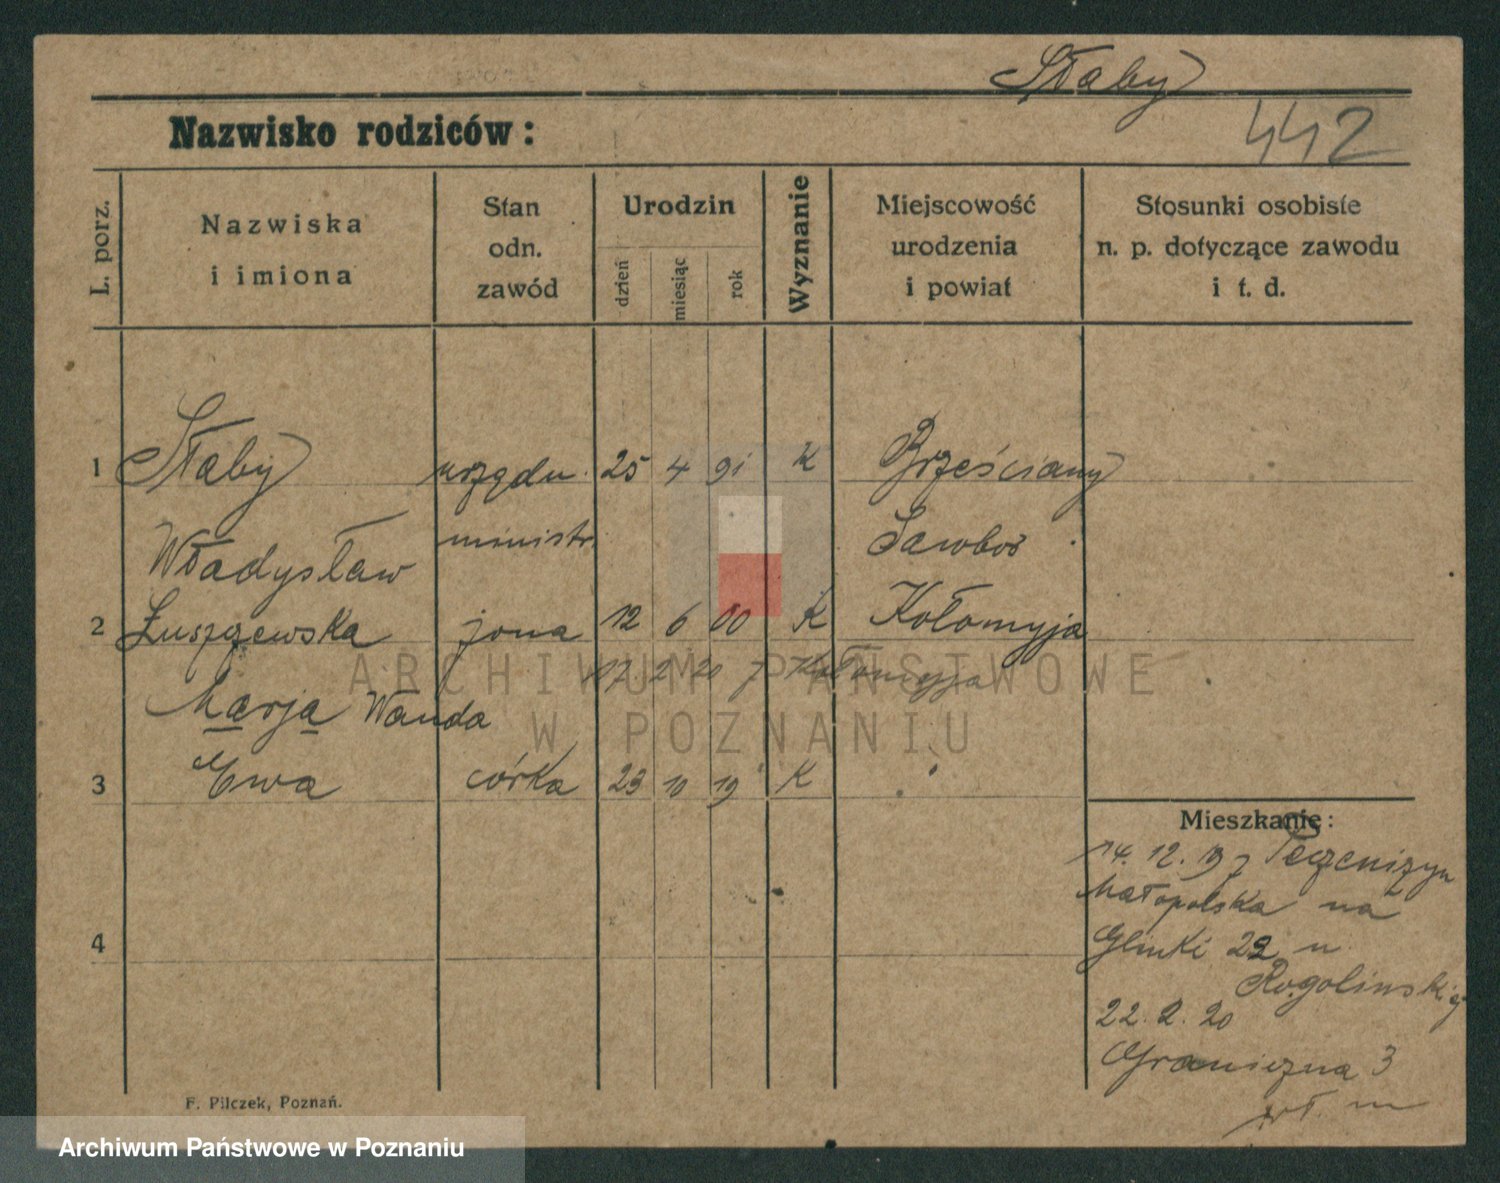 Słaby
Nazwisko rodziców:
442
L. porz.
Nazwiska
i imiona
Stan
odn.
zawód
Urodzin
dzień
miesiąc
rok
Wyznanie
Miejscowość
urodzenia
i powiat
Stosunki osobiste
n. p. dotyczące zawodu
i t. d.
1 Słaby urzędn. 25 4 91 K Brześciany
Władysław ministr. Sambor
2 Łuszczewska żona 12 6 00 K Kołomyja
17. 2 20 z Kołomyja
Marja Wanda
3 Ewa córka 23 10 19 K
4
Mieszkanie:
14. 12. 19 z Peczeniżyn
Małopolska na
Glinki 22 u
Rogolinskiej
22. 2. 20
Graniczna 3
wł. m
F. Pilczek, Poznań.
ARCHIWUM PAŃSTWOWE
W POZNANIU
Archiwum Państwowe w Poznaniu